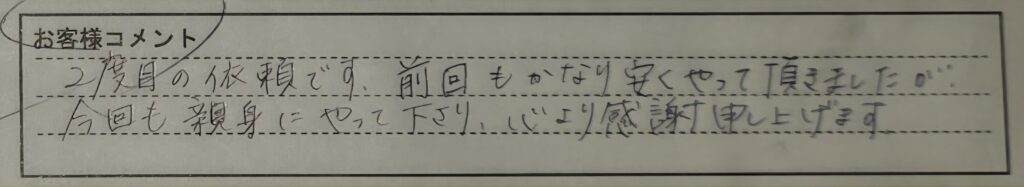 お客様コメント
2度目の依頼です、前回もかなり安くやって頂きましたが、
今回も親身にやって下さり、心より感謝申し上げます。